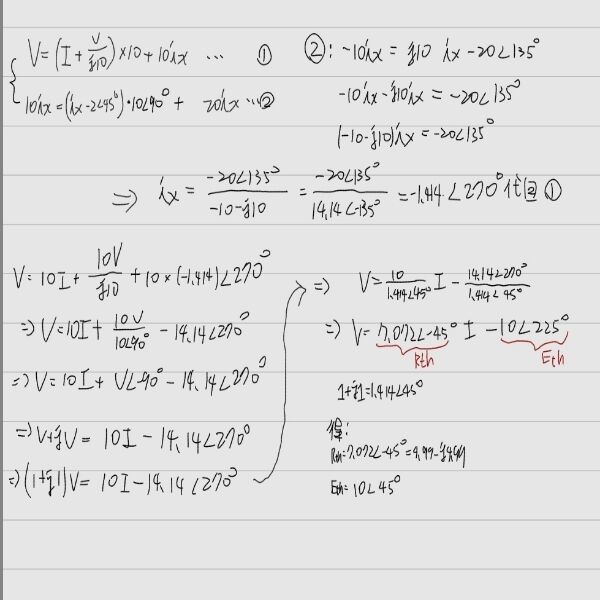 V=(I+V/j10)×10+10ix … ①
10ix=(ix-2∠45°)·10∠90°+ 20ix …②
②: -10ix = j10 ix -20∠135°
-10ix-j10ix = -20∠135°
(-10-j10)ix = -20∠135°
⇒ ix = -20∠135°/-10-j10 = -20∠135°/14.14∠-135° = -1.414∠270° 代回 ①
V= 10I+ 10V/j10 +10×(-1.414)∠270°
⇒ V=10I+ 10V/10∠90° -14.14∠270°
⇒ V=10I+ V∠-90° -14.14∠270°
⇒ V+jV = 10I -14.14∠270°
⇒ (1+j1)V= 10I-14.14∠270°
⇒ V= 10/1.414∠45° I - 14.14∠270°/1.414∠45°
⇒ V= 7.072∠-45° I -10∠225°
Rth Eth
1+j1=1.414∠45°
得:
Rth=7.072∠-45°=4.99-j4.99
Eth= 10∠45°